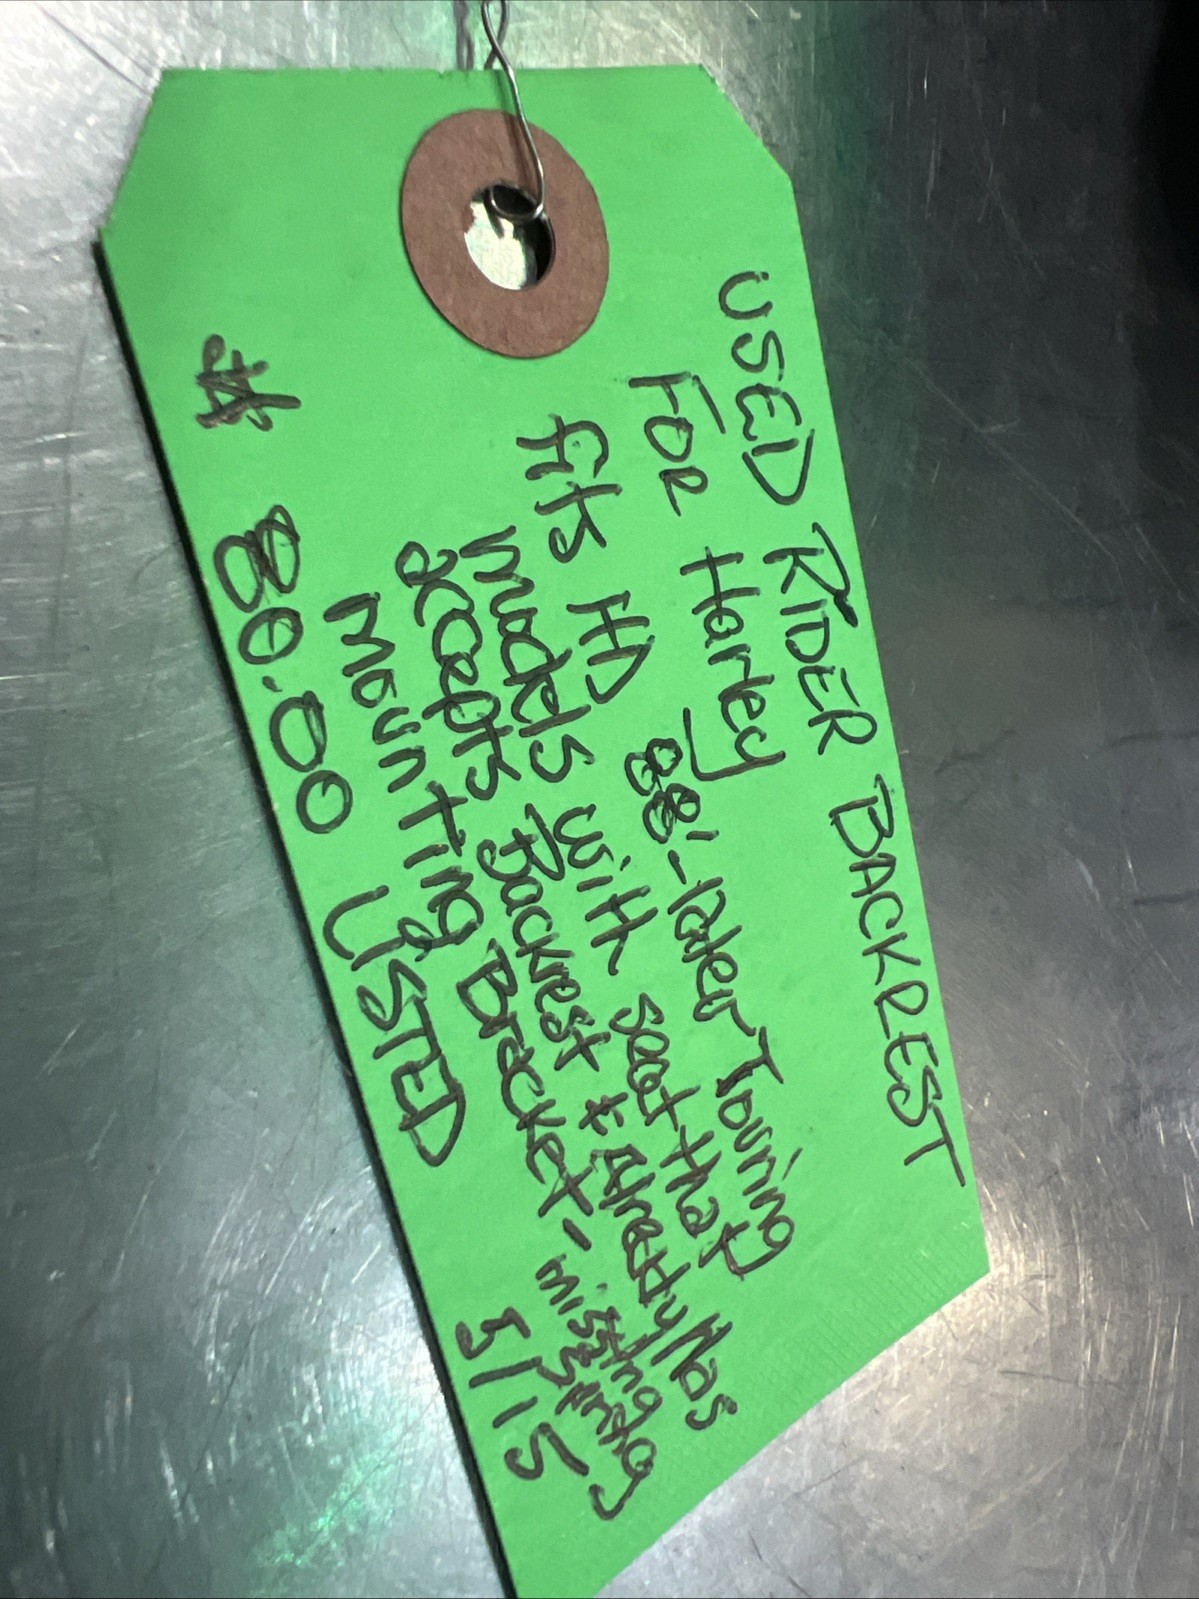 USED RIDER BACKREST
FOR Harley
fits HD 88'-later Touring
models with seat that
accepts Backrest & Already Has
Mounting Bracket - missing
$ 80.00 USTED 5/15